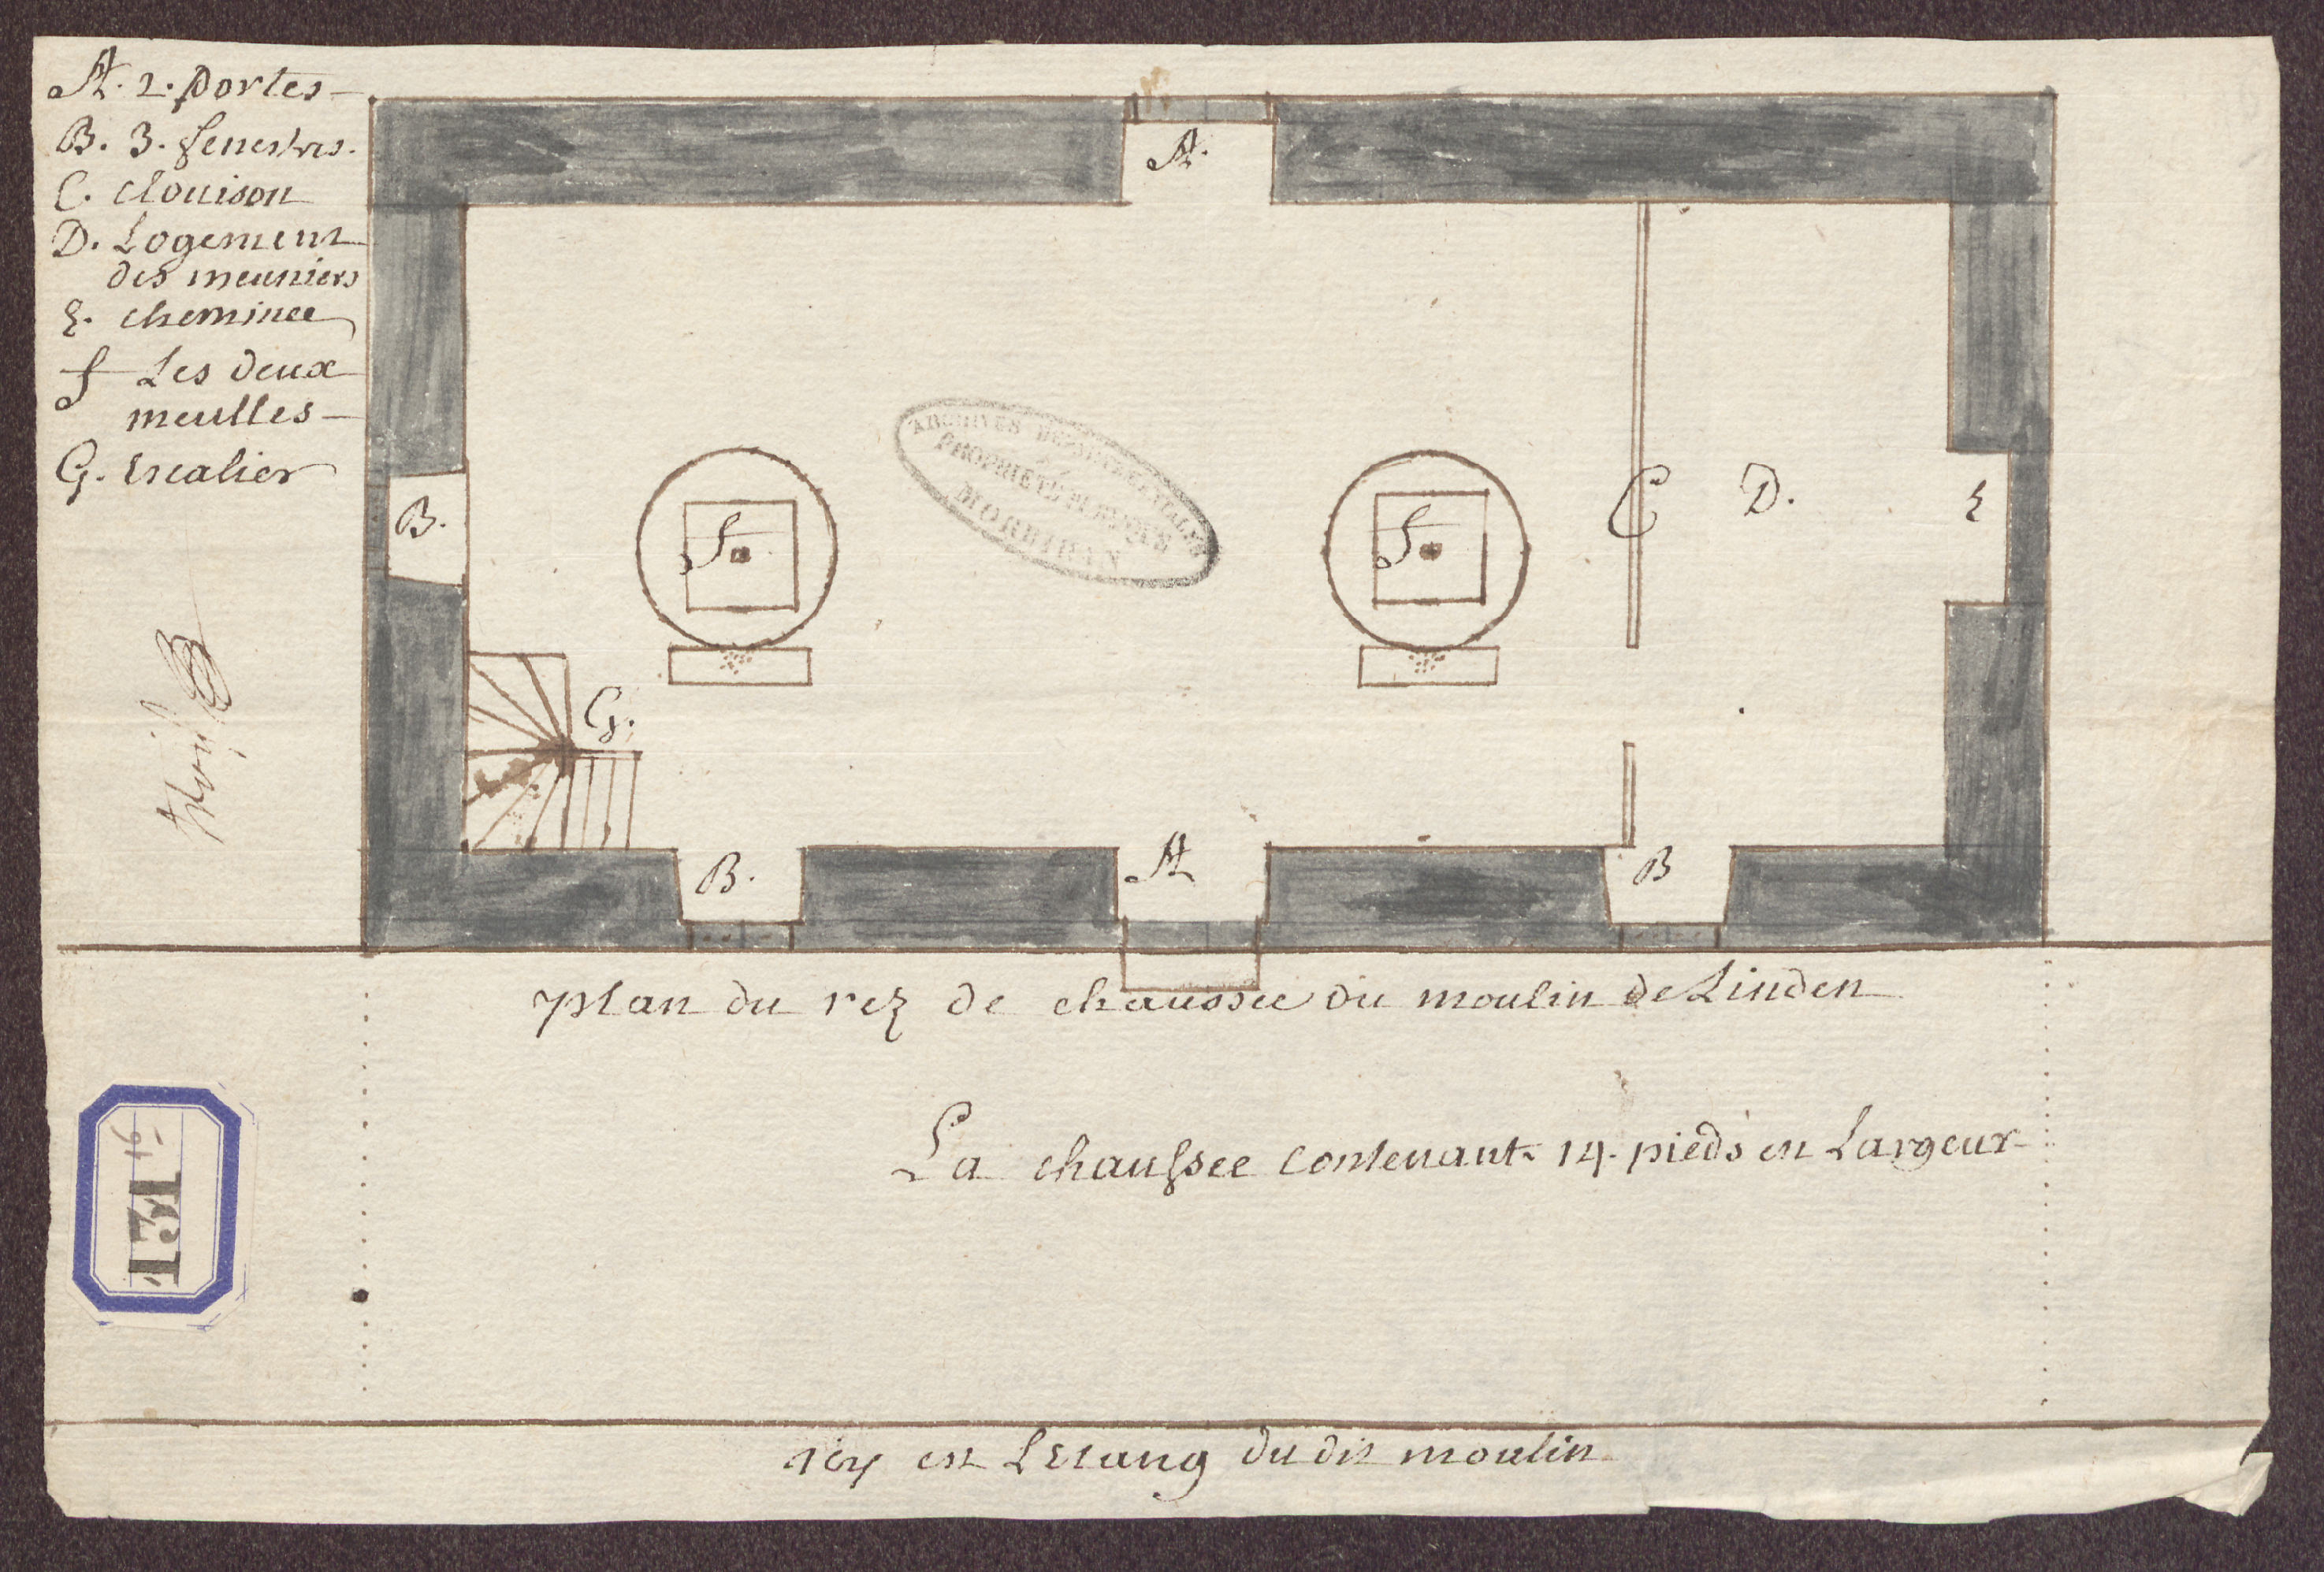 A. 2. portes
B. 3. fenestres.
C. clouison
D. Logement
des meuniers
E. cheminee
f Les deux
meulles
G. Escalier
A.
B.
f
f
C
D.
E
G.
B.
A
B
ARCHIVES DEPARTEMENTALES
PROPRIETE PUBLIQUE
MORBIHAN
plan du rez de chaussee du moulin de Linden
La chaussee contenant 14. pieds en Largeur
131
16
icy est Letang du dit moulin